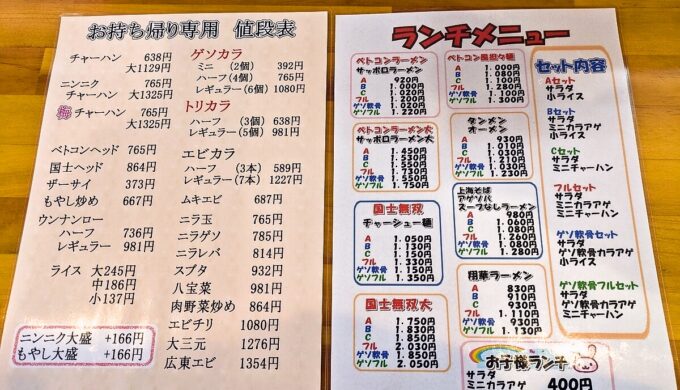 お持ち帰り専用 値段表
チャーハン 638円
大1129円
ニンニク 765円
チャーハン 大1325円
梅チャーハン 765円
大1325円
ベトコンヘッド 765円
国士ヘッド 864円
ザーサイ 373円
もやし炒め 667円
ウンナンロー
ハーフ 736円
レギュラー 981円
ライス 大245円
中186円
小137円
ニンニク大盛 +166円
もやし大盛 +166円
ゲソカラ
ミニ (2個) 392円
ハーフ (4個) 765円
レギュラー (6個) 1080円
トリカラ
ハーフ (3個) 638円
レギュラー (5個) 981円
エビカラ
ハーフ (3本) 589円
レギュラー (7本) 1227円
ムキエビ 687円
ニラ玉 765円
ニラゲソ 785円
ニラレバ 814円
スブタ 932円
八宝菜 981円
肉野菜炒め 864円
エビチリ 1080円
大三元 1276円
広東エビ 1354円
ランチメニュー
ベトコンラーメン
サッポロラーメン
920円
A 1.000円
B 1.020円
C 1.050円
フル 1.200円
ゲソ軟骨 1.000円
ゲソフル 1.220円
ベトコンラーメン大
サッポロラーメン大
A 1.450円
B 1.530円
C 1.550円
フル 1.730円
ゲソ軟骨 1.550円
ゲソフル 1.750円
国士無双
チャーシュー麺
A 1.050円
B 1.130円
C 1.150円
フル 1.330円
ゲソ軟骨 1.150円
ゲソフル 1.350円
国士無双大
A 1.750円
B 1.830円
C 1.850円
フル 2.030円
ゲソ軟骨 1.850円
ゲソフル 2.050円
ベトコン風担々麺
A 1.000円
B 1.080円
C 1.100円
フル 1.280円
ゲソ軟骨 1.100円
ゲソフル 1.300円
タンメン
オーメン
A 930円
B 1.010円
C 1.030円
フル 1.210円
ゲソ軟骨 1.030円
ゲソフル 1.230円
上海そば
アゲソバ
スープなしラーメン
A 980円
B 1.060円
C 1.080円
フル 1.260円
ゲソ軟骨 1.080円
ゲソフル 1.280円
翔華ラーメン
A 830円
B 910円
C 930円
フル 1.110円
ゲソ軟骨 930円
ゲソフル 1.130円
お子様ランチ
サラダ
ミニカラアゲ 400円
セット内容
Aセット
サラダ
小ライス
Bセット
サラダ
ミニカラアゲ
小ライス
Cセット
サラダ
ミニチャーハン
フルセット
サラダ
ミニカラアゲ
ミニチャーハン
ゲソ軟骨セット
サラダ
ゲソ軟骨カラアゲ
小ライス
ゲソ軟骨フルセット
サラダ
ゲソ軟骨カラアゲ
ミニチャーハン